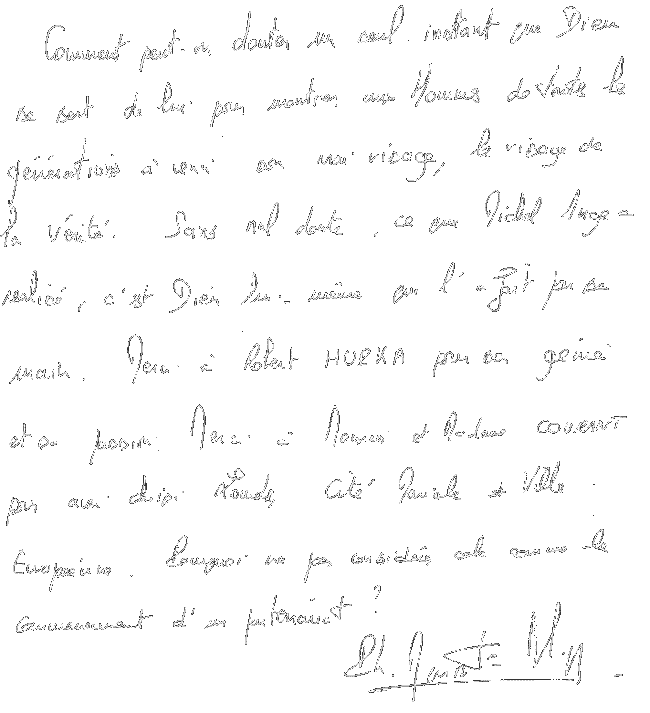 Comment peut-on douter un seul instant que Dieu
se sert de lui pour montrer aux Hommes de toutes les
générations à venir son vrai visage, le visage de
la vérité. Sans nul doute, ce que Michel Ange a
réalisé, c'est Dieu lui-même qui l'a fait par sa
main. Merci à Robert HUPKA pour son génie
et sa passion. Merci à Monsieur et Madame
pour avoir choisi Lourdes, Cité Mariale et Ville
Européenne. Pourquoi ne pas considérer cela comme le
commencement d'un partenariat ?
Ph.